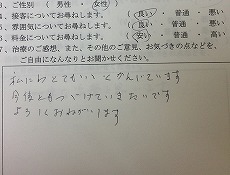 3、ご性別 ( 男性 ・ 女性 )
4、接客についてお尋ねします。 ( 良い ・ 普通 ・ 悪い
5、雰囲気についてお尋ねします。 ( 良い ・ 普通 ・ 悪い
6、料金についてお尋ねします。 ( 安い ・ 普通 ・ 高い
7、治療のご感想、また、その他のご意見、お気づきの点などを、
ご自由になんなりとお聞かせください。
私にはとてもいいとかんじています
今後ともつづけていきたいです
よろしくおねがいします